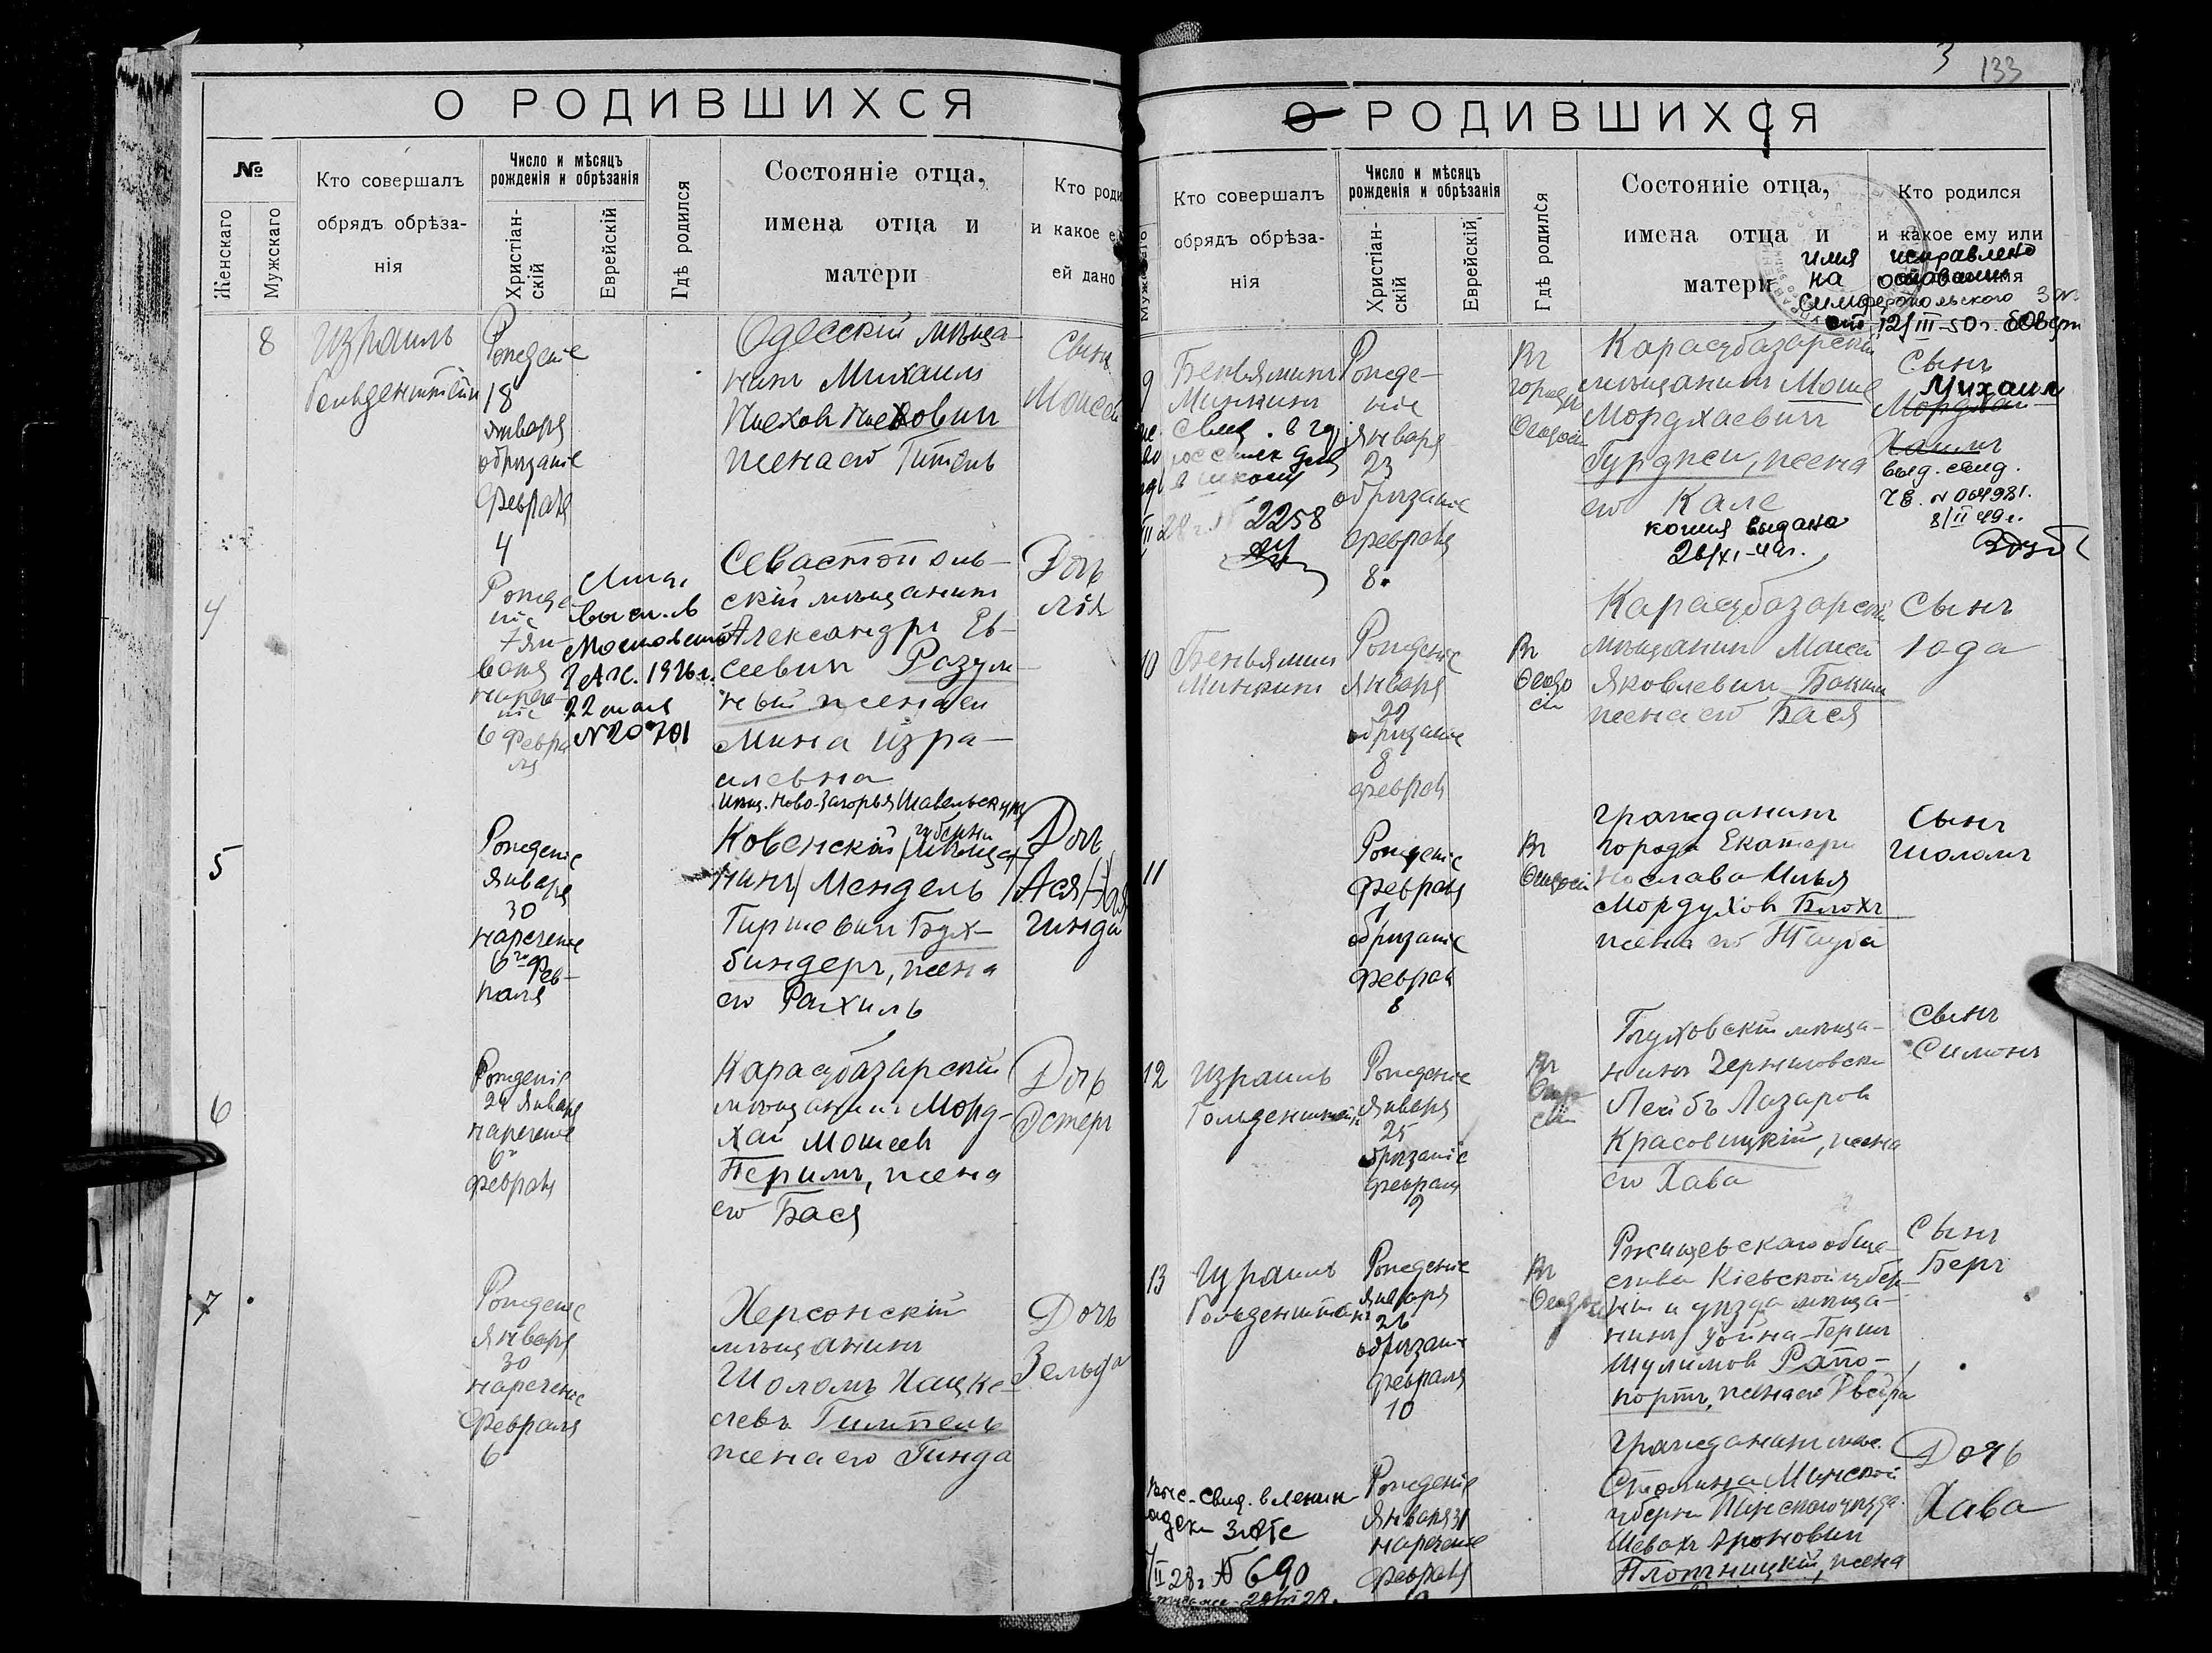 О РОДИВШИХСЯ
№
Женскаго
Мужскаго
Кто совершалъ
обрядъ обрѣза-
нія
Число и мѣсяцъ
рожденія и обрѣзанія
Христіан-
скій
Еврейскій
Гдѣ родился
Состояніе отца,
имена отца и
матери
Кто роди
и какое е
ей дано
8
Израиль
Гольденштейн
Рожденіе
18
января
обрѣзаніе
Февраля
4
Одесскій мѣща-
нинъ Михаилъ
жена его Гитель
Сынъ
Моисей
4
Рожде
ніе
7 ян-
варя
нарече-
ніе
6 Февра
ля
22 мая
N 20701
Севастополь-
скій мѣщанинъ
Александръ Ев-
сеевичъ Разум-
ный жена его
Мина Изра-
илевна
Дочь
Лія
5
Рожденіе
Января
30
нареченіе
6го Фев-
раля
Ковенской губерніи мѣща-
нинъ Мендель
Гиршевичъ Бух-
биндеръ, жена
его Рахиль
Дочь
Ася Хая
Гинда
6
Рожденіе
24 Января
нареченіе
6го
февраля
Карасубазарскій
мѣщанинъ Морд-
хай Мошеев
Перимъ, жена
его Бася
Дочь
Эстеръ
7
Рожденіе
Января
30
нареченіе
Февраля
6
Херсонскій
мѣщанинъ
Шоломъ Хацке-
левъ Гимпель
жена его Гинда
Дочь
Зельда
3
133
О РОДИВШИХСЯ
Мужскаго
Кто совершалъ
обрядъ обрѣза-
нія
Число и мѣсяцъ
рожденія и обрѣзанія
Христіан-
скій
Еврейскій
Гдѣ родился
Состояніе отца,
имена отца и
матери
Кто родился
и какое ему или
имя исправлено
на основании
Симферопольского
от 12/III-50г.
9
Беньяминъ
Минкинъ
28 г. № 2258
Рожде-
ніе
января
23
обрѣзаніе
февраля
8
Въ
городѣ
Ѳеодосіи
Карасубазарскій
мѣщанинъ Моше
Мордхаевичъ
Гурджи, жена
его Кале
копия выдана
26/XI-49г.
Сынъ
Михаил
Мордхай
Хаимъ
выд. свид.
ЧВ. N 064981.
8/II 49г.
10
Беньямин
Минкинъ
Рожденіе
Января
29
обрѣзаніе
8
февраля
Въ
Ѳеодо
сіи
Карасубазарскій
мѣщанинъ Моисей
Яковлевичъ
жена его Бася
Сынъ
Іода
11
Рожденіе
февраля
1
обрѣзаніе
февраля
8
Въ
Ѳеодосіи
гражданинъ
города Екатери
нослава Илья
Мордуховъ Блохъ
жена его Тауба
Сынъ
Шоломъ
12
Израиль
Гольденштейн
Рожденіе
Января
25
обрѣзаніе
февраля
Въ
Ѳеодо
сіи
Глуховскій мѣща-
нинъ Черниговской
Лейбъ Лазаров
Красовицкій, жена
его Хава
Сынъ
Симонъ
13
Израиль
Гольденштейнъ
Рожденіе
Января
26
обрѣзаніе
февраля
10
Въ
Ѳеодосіи
Ржищевскаго обще-
ства Кіевской губер-
ніи и уѣзда мѣща-
нинъ Гершъ
Шулимов Рапо-
портъ, жена его Двейра
Сынъ
Беръ
28 г. № 690
Рожденіе
Января 31
нареченіе
февраля
10
гражданинъ мѣс.
Столина Минской
губерніи Пинскаго уѣзда
Шевахъ Ароновичъ
Плотницкій, жена
Дочь
Хава